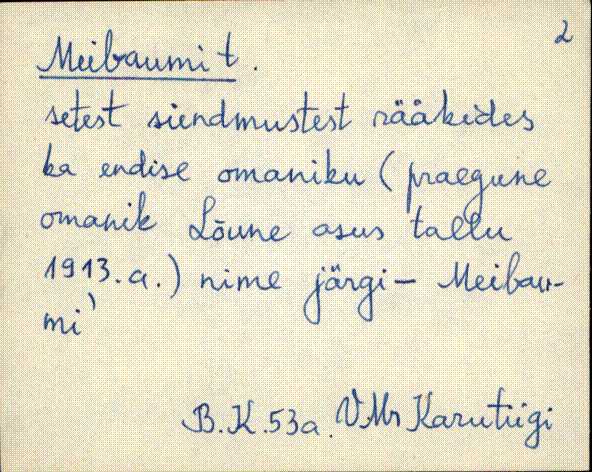 2
Meibaumi t.
setest sündmustest rääkides
ka endise omaniku (praegune
omanik Lõune asus tallu
1913.a.) nime järgi – Meibau-
mi'
B.K.53a. VMr Karutiigi